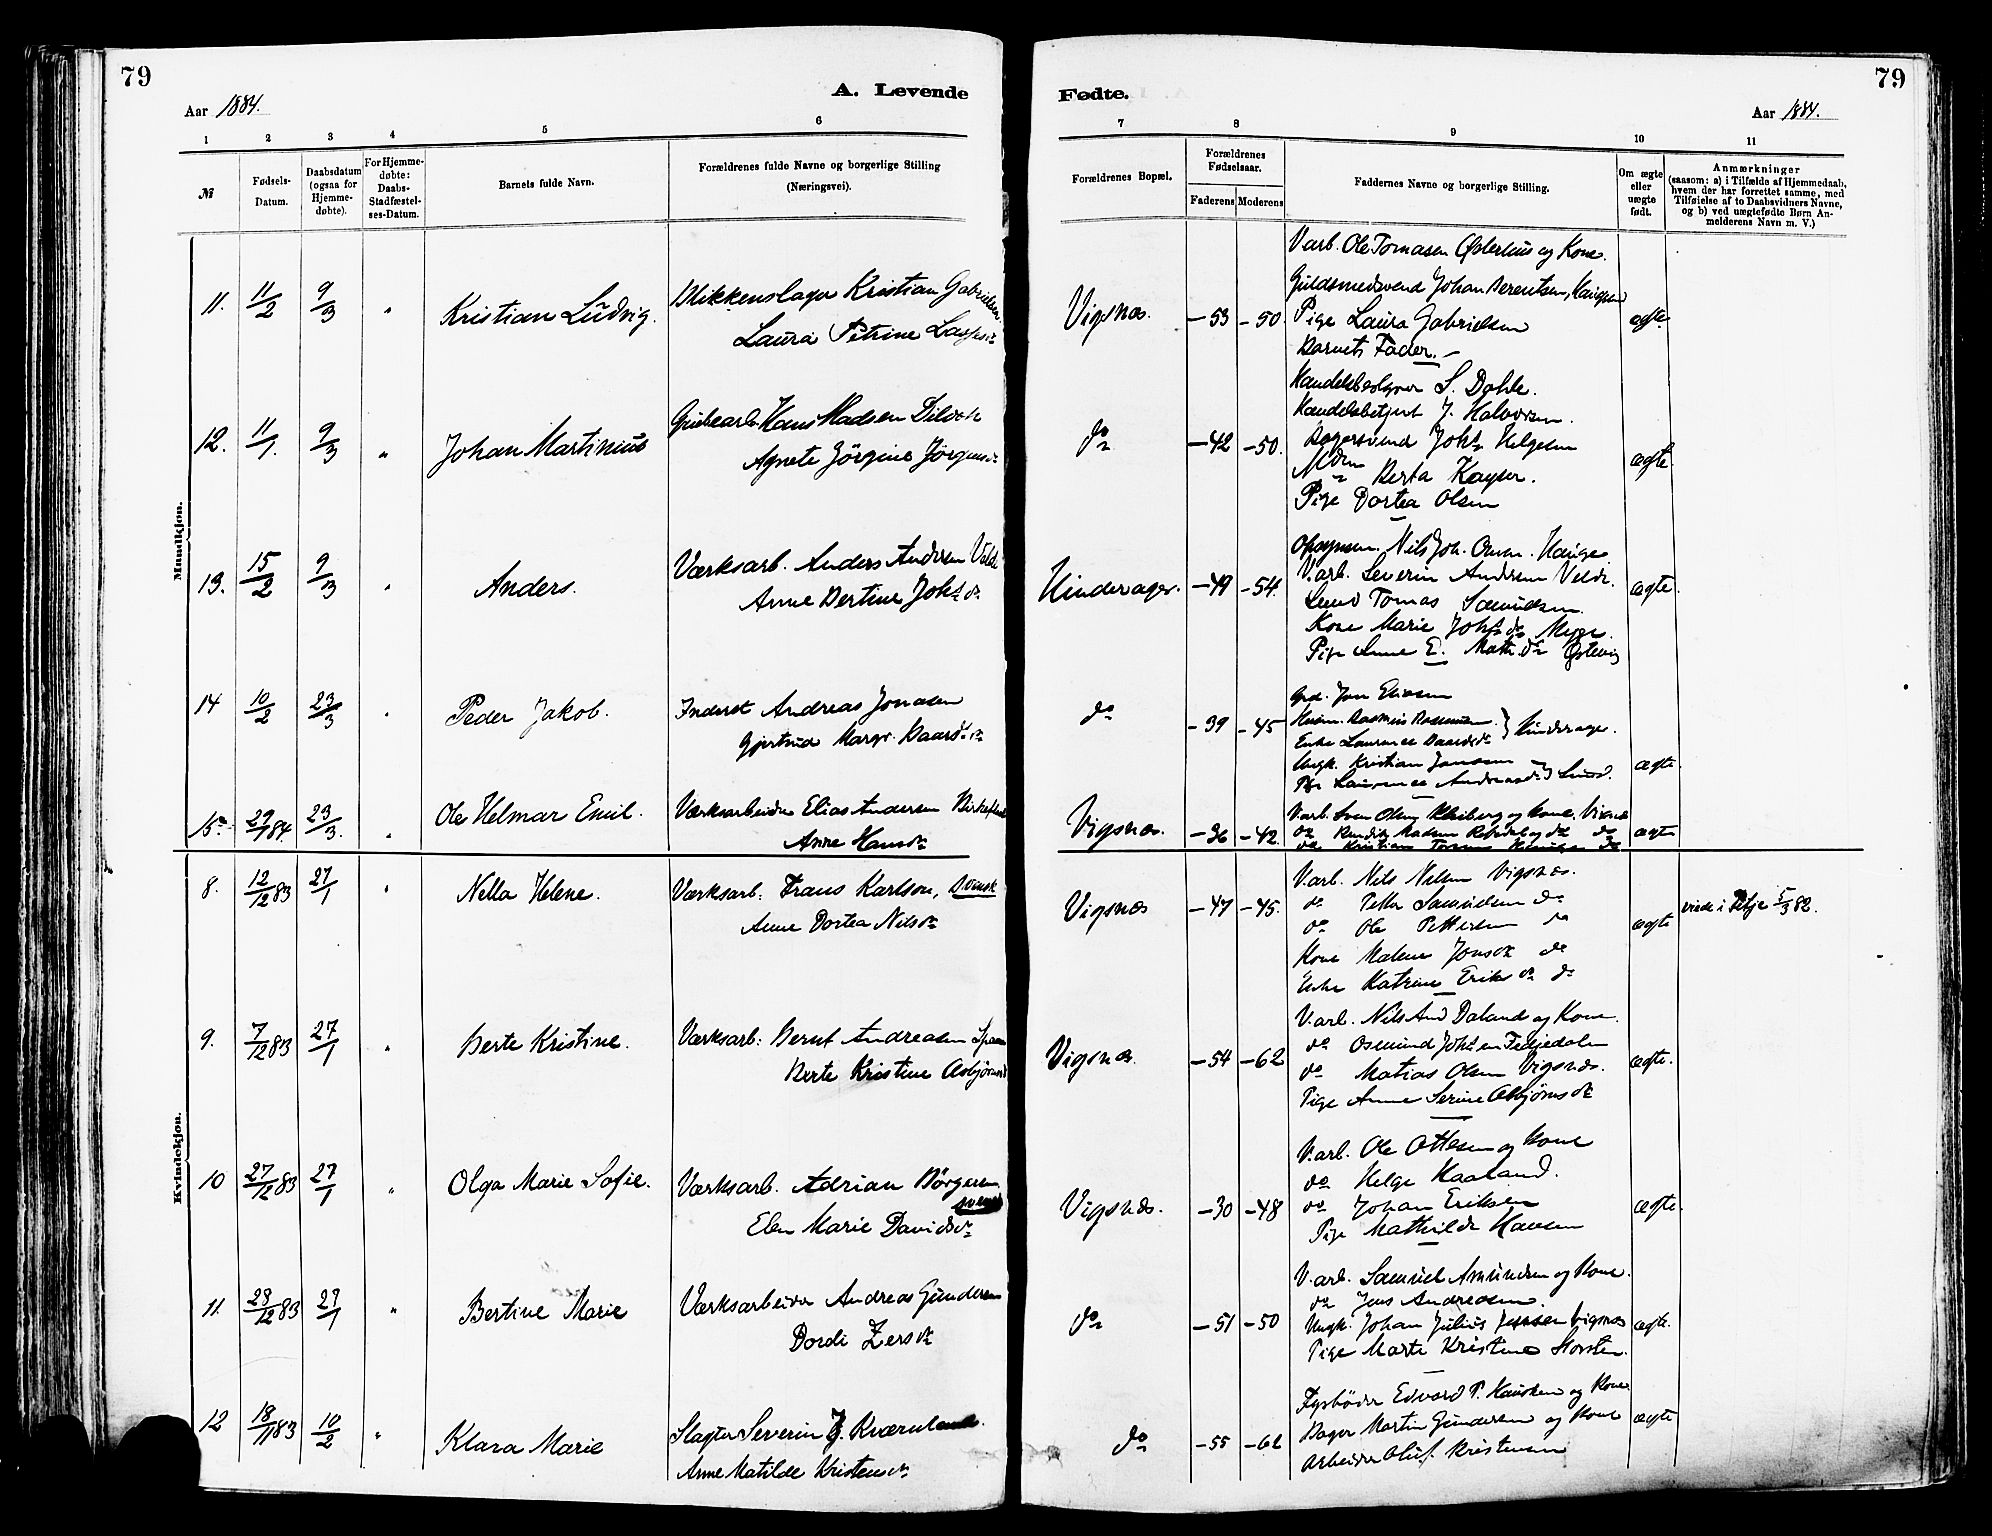 79
A. Levende
Aar 1884.
1 2 3 4 5 6
№
Fødsels-Datum.
Daabsdatum (ogsaa for Hjemme-døbte).
For Hjemme-døbte: Daabs-Stadfæstel-ses-Datum.
Barnets fulde Navn.
Forældrenes fulde Navne og borgerlige Stilling
(Næringsvei).
Mandkjøn.
11. 11/2 9/3 " Kristian Ludvig. Blikkenslager Kristian Gabrielsen
Laura Petrine
12. 11/1. 9/3 " Johan Martinius Hans Madsen
Agnete Jørgine Jørgensdr
13. 15/2 9/3 " Anders. Værksarb. Anders Andersen
Anne Bertine Johsdr
14 10/2 23/3 " Peder Jakob. Inderst Andreas Jonasen
Gjertrud Margr. Baardsdr
15 29/1 84. 23/3. " Ole Helmar Emil. Værksarbeider Elias Andersen
Anne Hansdr
Kvindekjøn.
8. 12/12 83 27/1 " Nella Helene. Værksarb. Frans Karlson, Svensk
Anne Dortea Nilsdr
9. 7/12 83 27/1 " Berte Kristine. Værksarb. Bernt Andreasen
Berte Kristine Asbjørnsdr
10 27/12 83 27/1 " Olga Marie Sofie. Værksarb. Adrian Børgesen
svensk
Elen Marie Davidsdr
11. 23/12 83 29/1 " Bertine Marie Værksarbeider Andreas Gundersen
Dordi
12 18/11 83 10/2 " Klara Marie Slagter Severin J. Kværneland.
Anne Matilde Kristensdr
79
Fødte.
Aar 1884.
7 8 9 10 11
Forældrenes Bopæl.
Forældrenes Fødselsaar.
Faderens Moderens
Faddernes Navne og borgerlige Stilling.
Om ægte eller uægte født.
Anmærkninger
(saasom: a) i Tilfælde af Hjemmedaab,
hvem der har forrettet samme, med
Tilføielse af to Daabsvidners Navne,
og b) ved uægtefødte Børn An-
melderens Navn m. V.)
V.arb. Ole Tomasen Østerhus og Kone.
Guldsmedsvend Johan Berentsen,
Vigsnæs. -53 -50. Pige Laura Gabrielsen ægte.
Barnets Fader.
S. Dahle.
Handelsbetjent J. Halvorsen.
do -42 -50. Bagersvend Johs Helgesen ægte.
Berta Kayser.
Pige Dortea Olsen
Nils Joh. Hauge
V.arb. Severin Andersen
Hinderager. -49 -54. Tomas Samuelsen. ægte.
Kone Marie Johsdr
Pige Anne E.
Jon Eliasen
do -39 -45 Husm. Rasmus
Enke Laurence Baardsdr } Hinderager.
Ungk. Kristian Jonassen ægte
Laurence Andreasdr
Vigsnæs. -36 -42. V.arb. Sven og Kone, Vigsnæs ægte
do Madsen do
do Kristian do
V.arb. Nils Nilsen Vigsnæs.
Vigsnæs -47 -45. do Samuelsen do ægte viede i 5/3 82.
do Ole Pettersen do
Kone Malene Jonsdr do
Enke Katrine Eriksdr do
V.arb. Nils And. Daland og Kone.
Vigsnæs -54 -62 do Osmund Johsen do ægte.
do Matias Olsen Vigsnæs.
Pige Anne Serine Asbjørnsdr
V.arb. Ole Ottesen og Kone
do Helge Haaland.
Vigsnæs. -30 -48 do Johan Eriksen ægte.
Pige Mathilde Hansen
V.arb. Samuel Amundsen og Kone.
do Jens Andreasen.
do -51 -50 Ungk. Johan Julius Jensen Vigsnæs ægte.
Pige Marte Kristine
Fyrbøder Edvard P. og Kone
Bager Martin Gundersen og Kone
do -55 -62 Arbeider Oluf Kristensen ægte